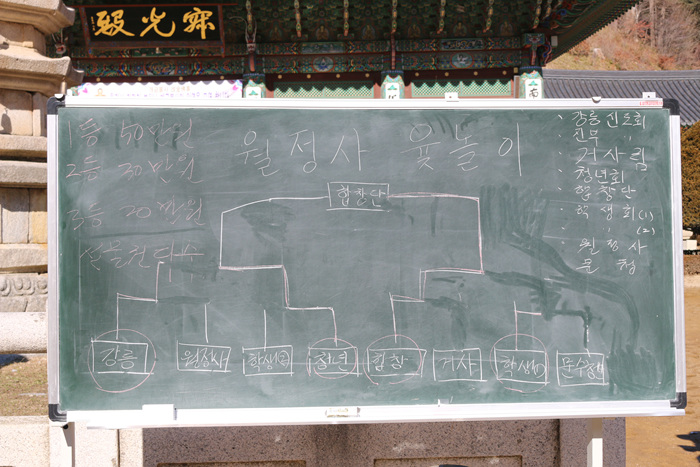 殿光寂
1등 50만원
2등 30만원
3등 20만원
선물 권다수
월정사 윷놀이
합창단
강릉 월정사 학생(2) 청년 합창 거사 학생(1)
· 강릉 신도회
· 진부 "
· 거사림
· 청년회
· 합창단
· 학생회(1)
· " (2)
· 월정사
· 문청